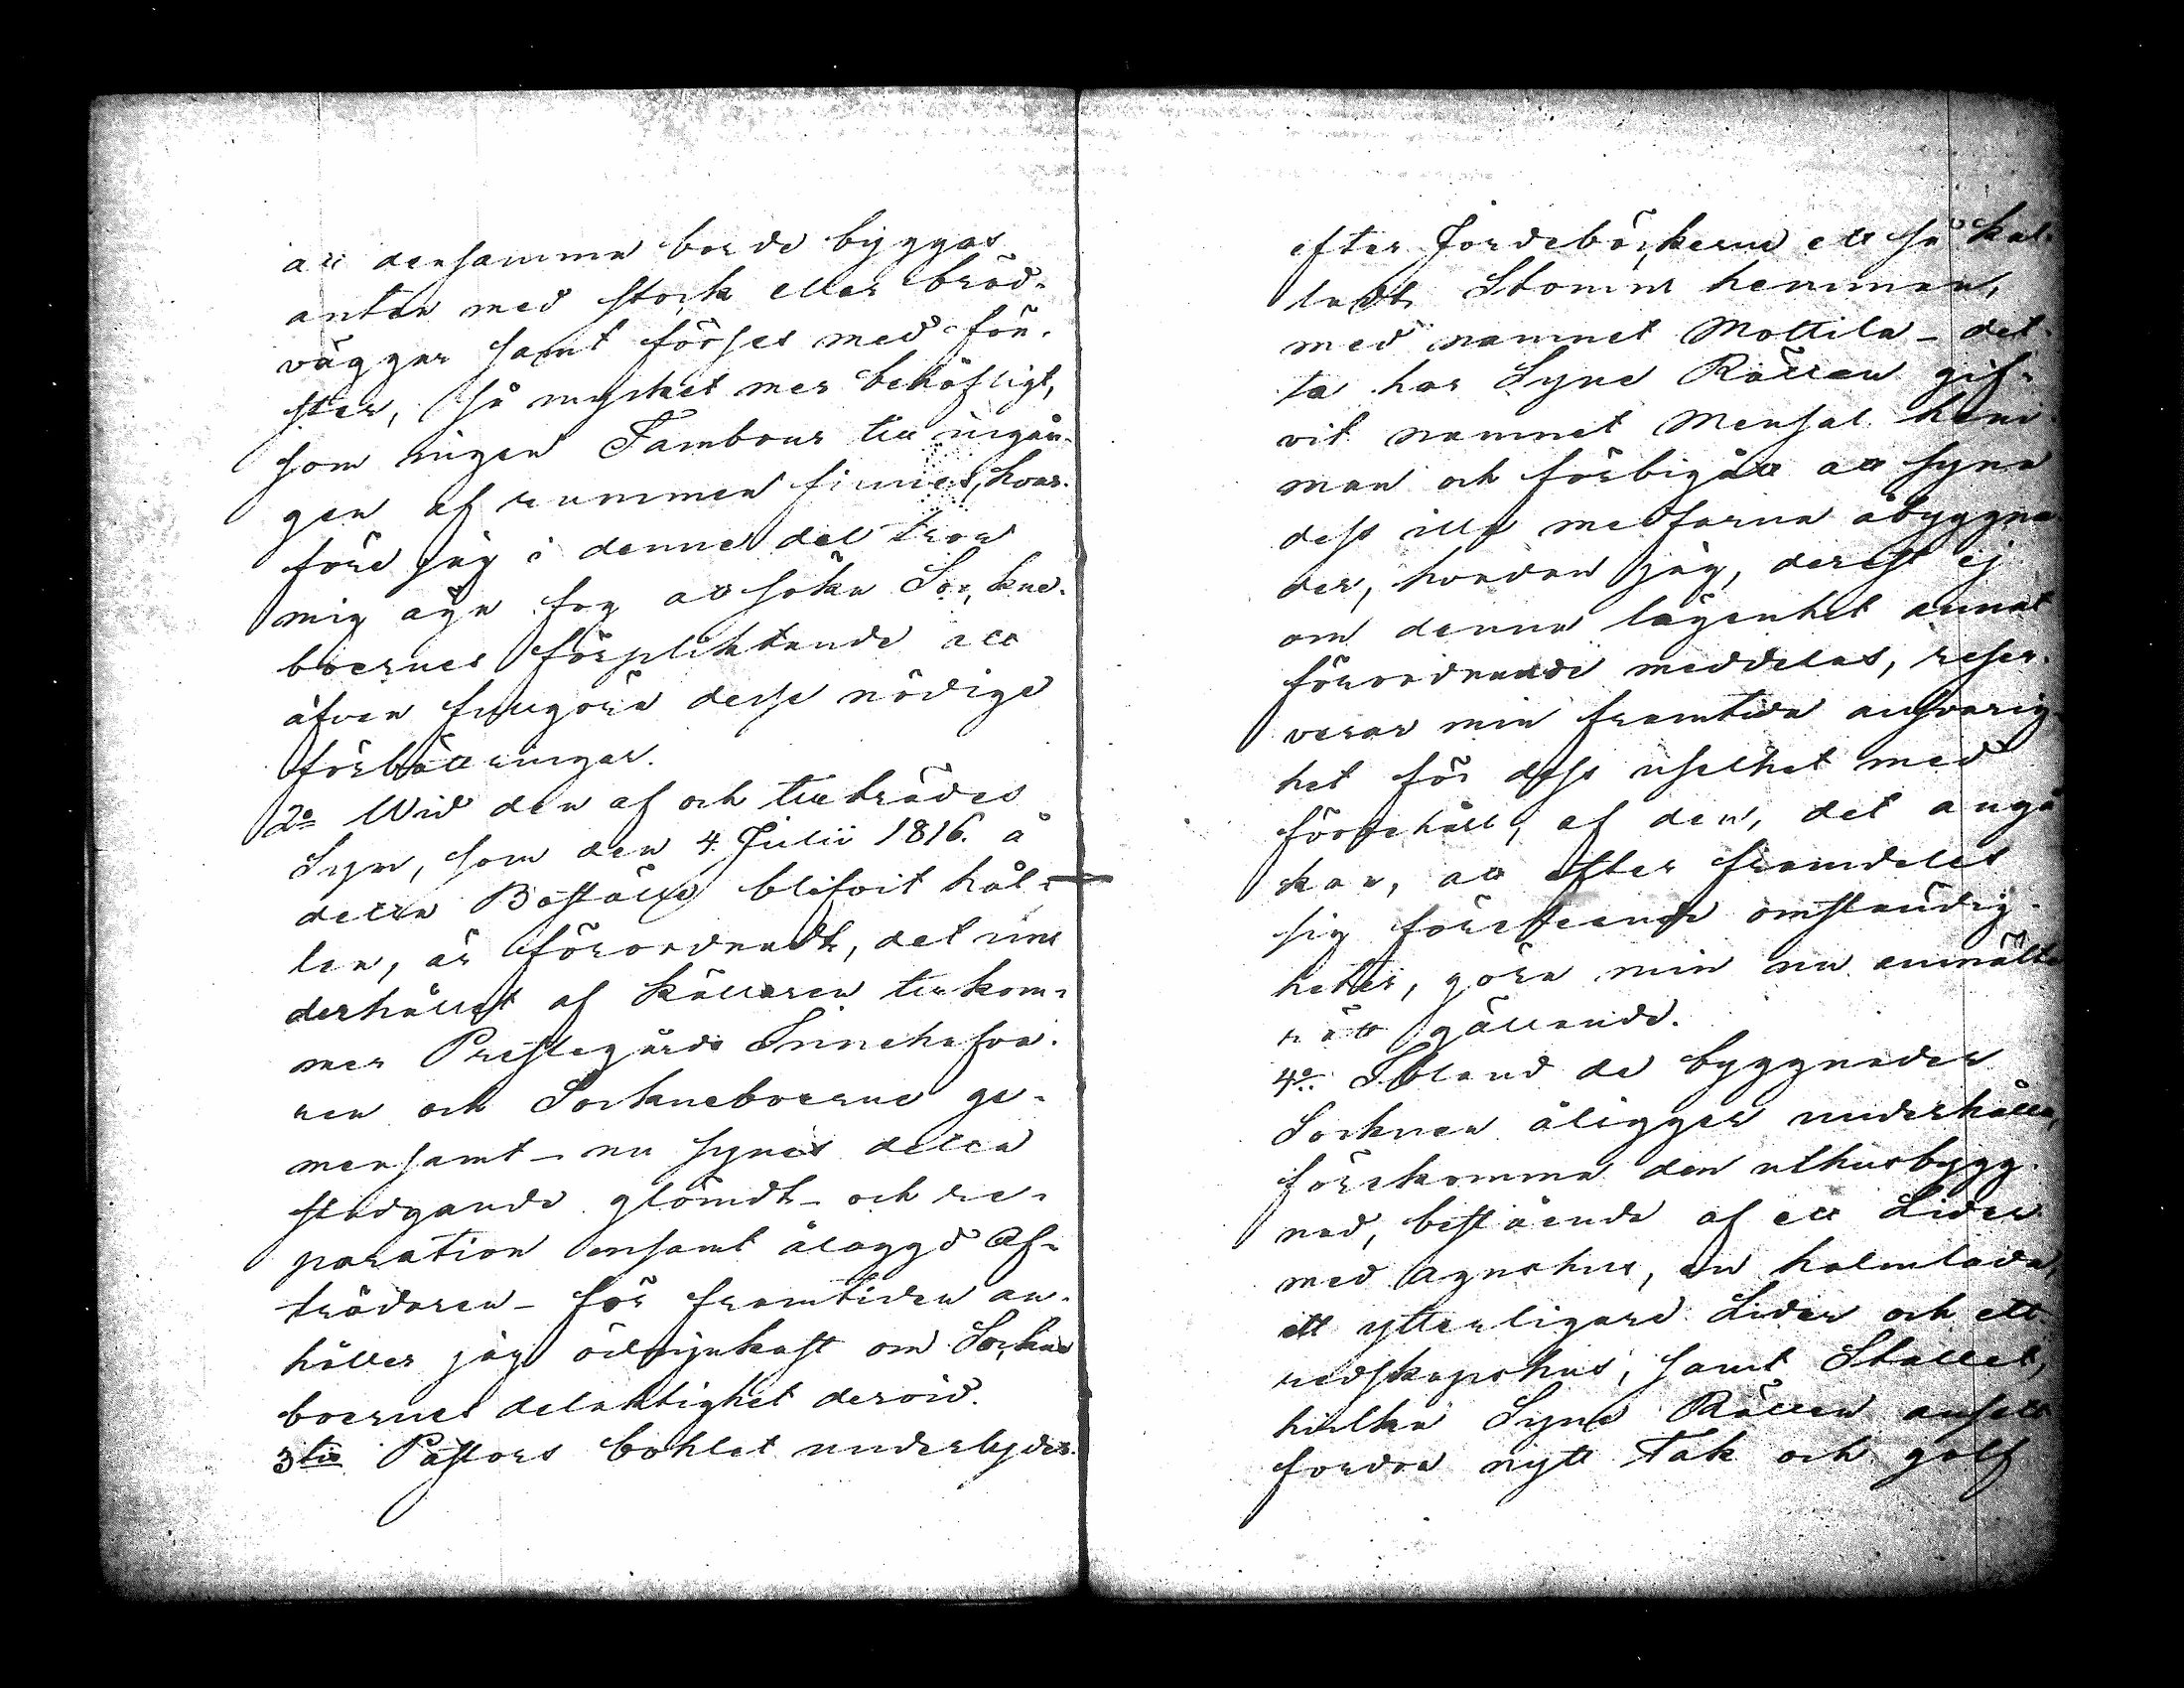 att densamma borde byggas
antin med stock eller bräd-
väggar samt förses med fön-
ster, så mycket mer behöfligt,
som ingen Tambour till ingån-
gen af rummen finnes, hvar-
före jag i denna del tror
mig äga fog att söka Sockne-
boernes förpliktande att
äfven fullgöra desse nödige
förbättringar.
2o Wid den af och tillträdes
Syn, som den 4 Julii 1816. å
detta Boställe blifvit hål-
len, är förordnadt, det un-
derhållet af källaren tillkom-
mer Prestegårds Innehafva-
ren och Sockneboerne ge-
mensamt – nu synes detta
stadgande glömdt – och re-
paration ensamt ålaggd Af-
trädaren – för framtiden an-
håller jag ödmjukast om Sockne
boernes delaktighet dervid.
3tio Pastors bohlet underlyder
efter Jordeböckerne ett så kal-
ladt Stomm hemman,
med namnet Mottila – det-
ta har Syne Rätten gif-
vit namnet Mensal hem-
man och förbigått att syna
dess illa medfarna åbyggna
der, hvadan jag, derest ej
om denna lägenhet annat
förordnande meddelas, reser-
verar min framtida ansvarig-
het för dess uselhet med
förbehåll, af den, det angå
kan, att efter framdeles
sig företeende omständig-
heter, göra min nu anmälte
rätt gällande.
4o Ibland de byggnader
Socknen åligger underhålla,
förekomma den uthusbygg-
nad, bestående af ett Lider
med agnshus, en halmlada,
ett ytterligare Lider och ett
redskapshus, samt Stallet,
hvilka Syne Rätten ansett
fordra nytt Tak och golf